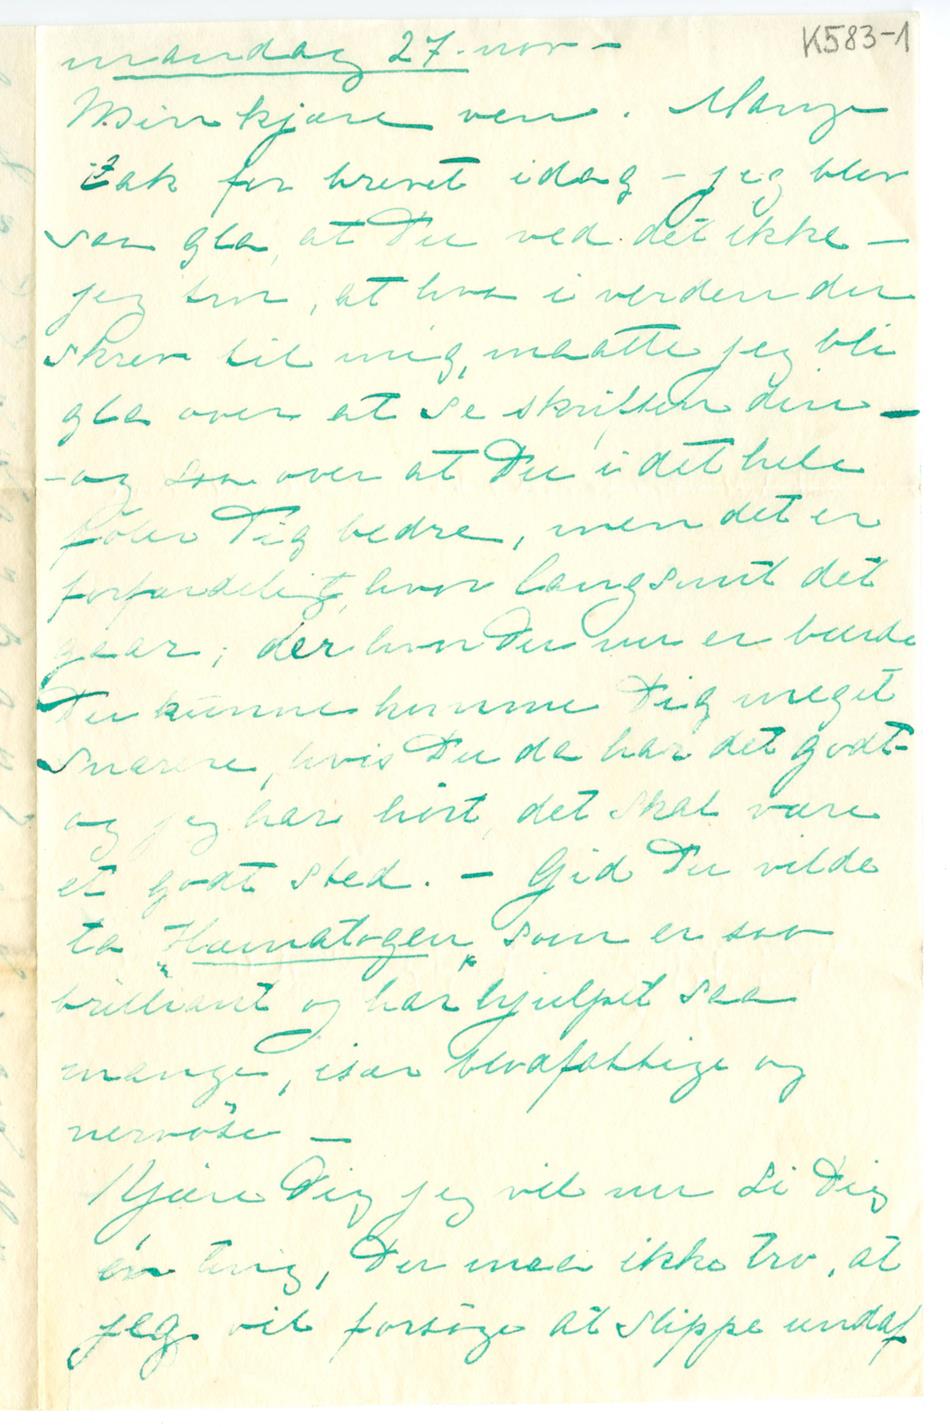 K583-1
mandag 27. nov –
Min kjære ven. Mange
tak for brevet idag – jeg blev
saa gla, at Du ved det ikke –
jeg tror, at hva i verden du
skrev til mig, maatte jeg bli
gla over at se skriften din –
– og saa over at Du i det hele
føler Dig bedre, men det er
forfærdeligt, hvor langsomt det
gaar; der hvor Du nu er burde
Du kunne komme Dig meget
snarere, hvis Du da har det godt –
og jeg har hørt, det skal være
et godt sted. – Gid Du vilde
ta "Hæmatogen" som er saa
brilliant og har hjulpet saa
mange, især blodfattige og
nervøse –
Kjære Dig jeg vil nu si Dig
én ting, Du maa ikke tro, at
jeg vil forsøge at slippe undaf